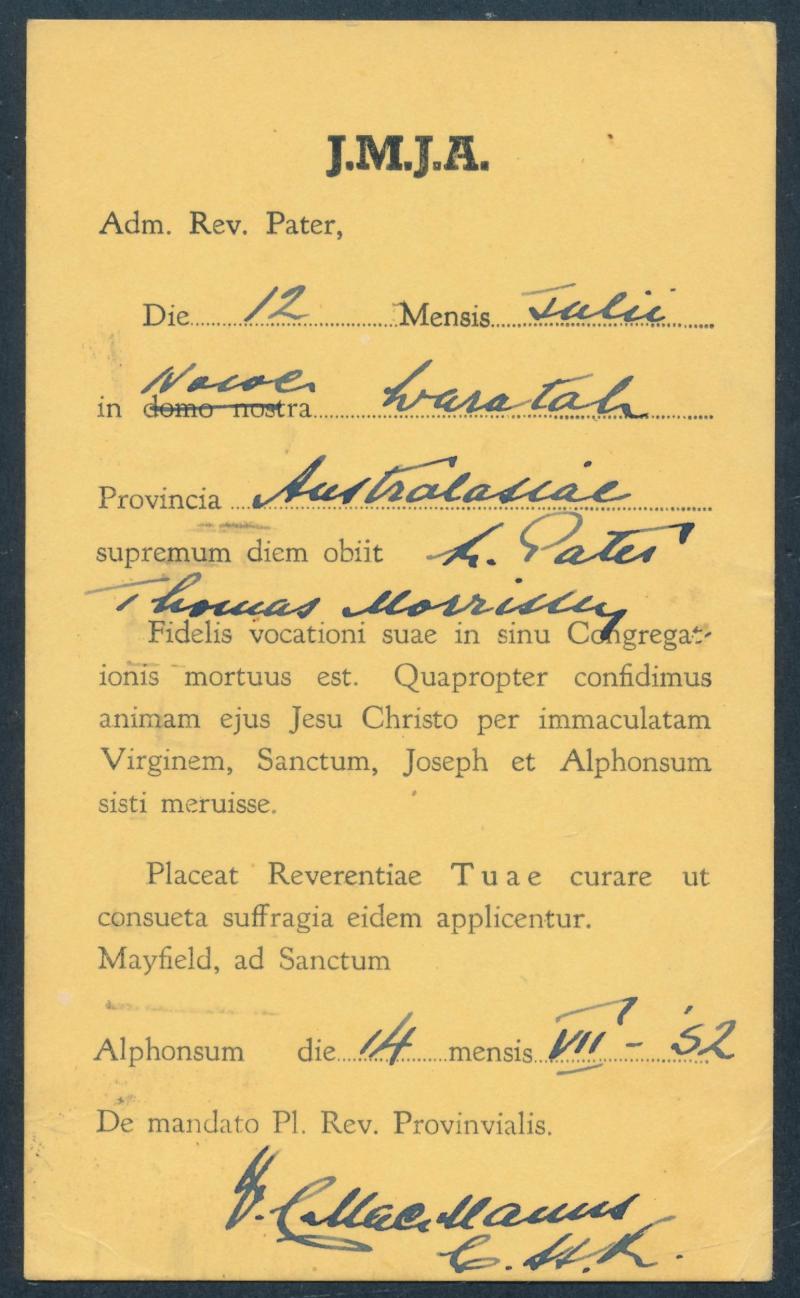 J.M.J.A.
Adm. Rev. Pater,
Die 12 Mensis Julii
Nosoc.
in domo nostra Waratah
Provincia Australasiae
supremum diem obiit R. Pater
Thomas Morrissey
Fidelis vocationi suae in sinu Congregat-
ionis mortuus est. Quapropter confidimus
animam ejus Jesu Christo per immaculatam
Virginem, Sanctum, Joseph et Alphonsum
sisti meruisse.
Placeat Reverentiae Tuae curare ut
consueta suffragia eidem applicentur.
Mayfield, ad Sanctum
Alphonsum die 14 mensis VII - '52
De mandato Pl. Rev. Provinvialis.
MacManus
C.SS.R.